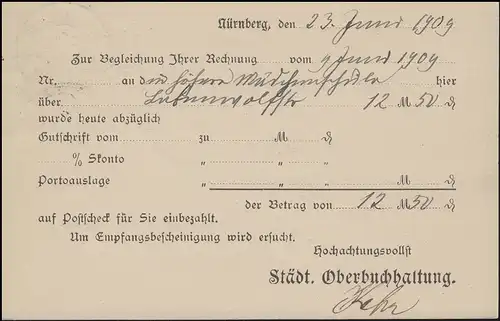 Nürnberg, den 23. Juni 1909
Zur Begleichung Ihrer Rechnung vom 9 Juni 1909
Nr. an die höhere Mädchenschule hier
über Labenwolfstr 12 M 50 ₰
wurde heute abzüglich
Gutschrift vom zu M ₰
% Skonto „ „ „
Portoauslage „ M ₰
der Betrag von 12 M 50 ₰
auf Postscheck für Sie einbezahlt.
Um Empfangsbescheinigung wird ersucht.
Hochachtungsvollst
Städt. Oberbuchhaltung.